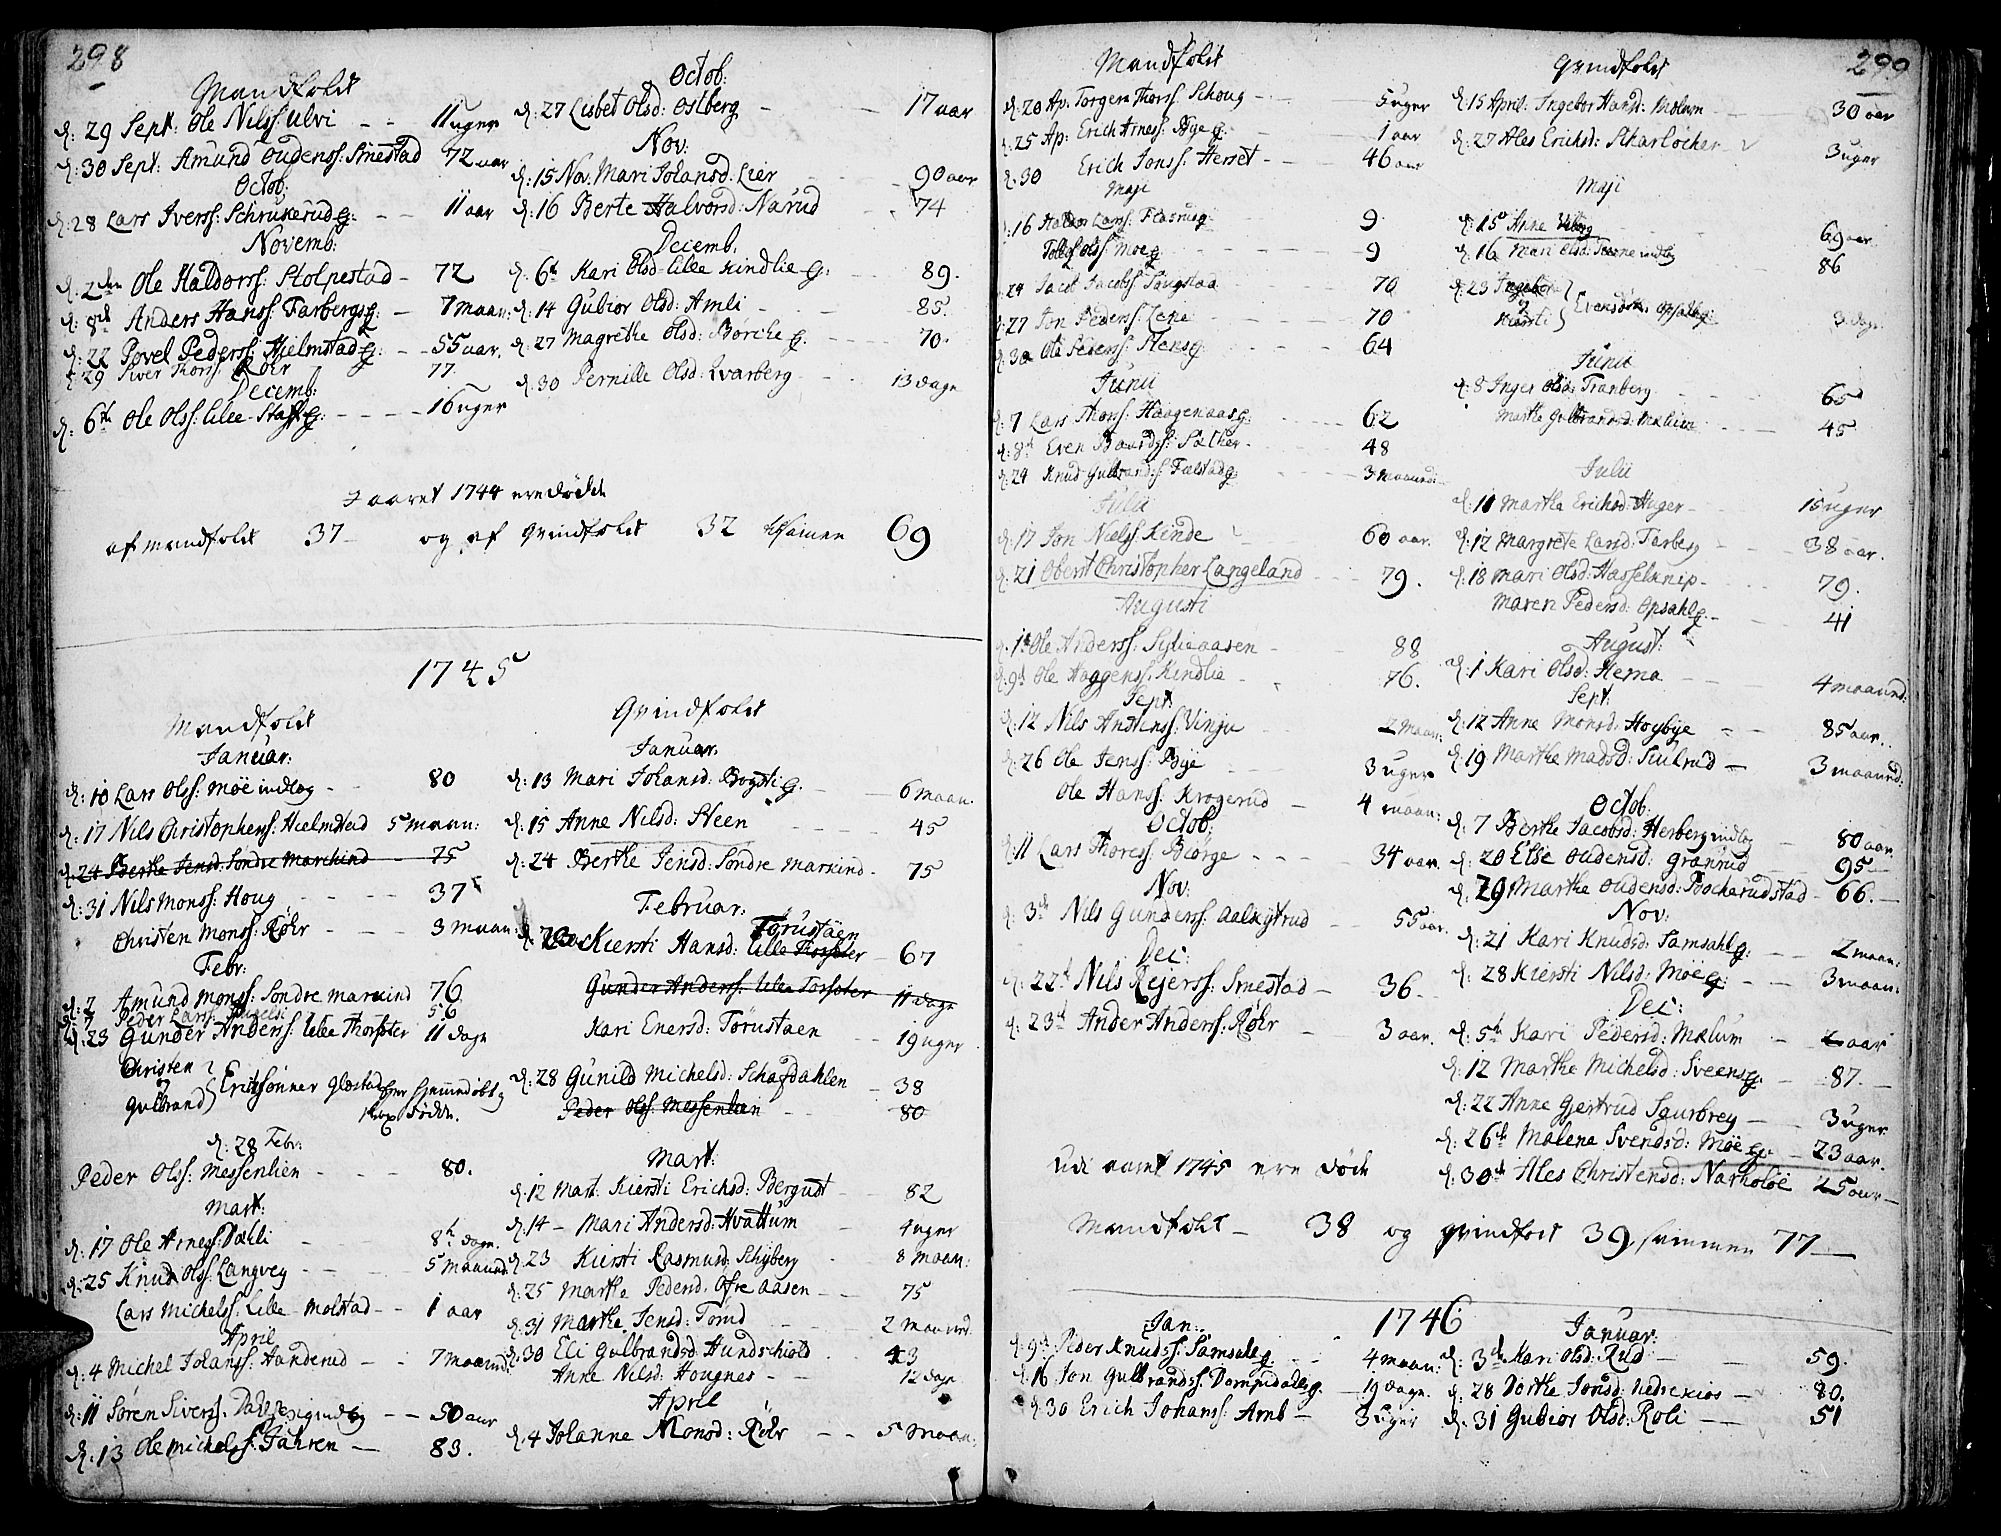 298
Mandfolck
d: 29 Sept: Ole Nilss: Ulvi - - 11 uger
d: 30 Sept: Amund Oudenss: Smestad 72 aar
Octob:
d: 28 Lars Iverss: Schrukerud g: - - 11 aar
Novemb:
d: 2den Ole Haldorss: Stolpestad - 72
d: 8de Anders Hanss: Farbergs g: - 7 maan:
d: 22 Povel Pederss: Hielmstad g: - - 55 aar.
d: 29 Siver Thorss: Röhr 77
Decemb:
d: 6te Ole Olss: Lille Staff g: - - - - 16 uger
Octob:
d: 27 Lisbet Olsd: Ostberg - - 17 aar
Nov:
d: 15 Nov: Mari Johansd: Lier - 90 aar
d: 16 Berte Halvorsd: Narud - 74
Decemb.
d: 6te Kari Olsd: Lille Kindlie g: - - 89.
d: 14 Gubior Olsd: Amli - - 85.
d: 27 Magrethe Olsd: Börche g. - - 70.
d: 30 Pernille Olsd: Qvarberg - - 13 dage
I aaret 1744 ere døde
af mandfolck 37 - og af qvindfolck 32 tilsamen 69
1745
Mandfolck
Januar:
d: 10 Lars Olss: Möe indlæg - - 80
d: 17 Nils Christophenss: Hielmstad 5 maan:
d: 24 Berthe Jensd: Sondre Markind - 75
d: 31 Nils Monss: Houg - - - - 37
Christen Monss: Röhr - - - 3 maan:
Febr:
d: 2 Amund Monss: Sondre Markind 76
d: 7 Peder Larss: 56
d: 23 Gunder Anderss: Lille Thorseter 11 dage
Christen
og
Gulbrand } Erichsönner Glæstad hiemmedøbt
strax døde.
d: 28 Febr:
Peder Olss: Messenlien - - - 80.
Mart:
d: 17 Ole Arness: Dæhli - - - 8te dage.
d: 25 Knud Olss: Langvey - - - 5 maaned
Lars Michelss: Lille Molstad - - 1 aar
April
d: 4 Michel Johanss: Handerud - - 7 maaned
d: 11 Sören Siverss: indlæg - - 50 aar
d: 13 Ole Michelss: Jahren - 83.
Qvindfolck
Januar.
d: 13 Mari Johansd: Bogsti g. - - 6 maan.
d: 15 Anne Nilsd: Steen - - 45
d: 24 Berthe Jensd: Söndre Markind - 75
Februar:
Torustaen
d: Kiersti Hansd: Lille Thorseter - 67
Gunder Anderss: Lille Torseter 11 dage
Kari Enersd: Törustaen - - 19 uger
d: 28 Gunild Michelsd: Schafdahlen - 38
Peder Olss: Messenlien - - 80
Mart:
d: 12 Mart: Kiersti Erichsd: Bergust - 82
d: 14 - Mari Andersd: Hvattum - 4 uger
d: 23 Kiersti Rasmusd: Schyberg - 8 maan:
d: 25 Marthe Pedersd: Ofre Aasen - 75
d: 31 Marthe Jensd: Torud - - 2 maaned
d: 30 Eli Gulbrandsd: Hundschiold - 43
Anne Nilsd: Hougnes - - 12 dage
April
d. 4 Johanne Monsd: Röhr - - 5 maan:
Mandfolck
d: 20 Ap: Torger Thorss: Schoug - - 5 uger
d: 25 Ap: Erich Arness: Bye g: - - 1 aar
d: 30 Erich Jonss: Herset - - - 46 aar
Maji
d: 16 Haldor Larss: 9.
Tolef Olss: Moe g - - - 9
d: 24 Jacob Jacobss: - - 70
d: 27 Jon Pederss: Lena - - 70
d: 30 Ole Pederss: Stens g: - - 64
Junii
d: 7 Lars Thorss: Haagenaas g: - - 62
d: 8de Even Baardss: Sæther - - 48
d: 24 Knud Gulbrandss: Falstad g: - - 3 maaned:
Julii
d: 17 Jon Nielss: Kinde - - 60 aar.
d: 21 Oberst Christopher Langeland - - 79.
Augusti
d. 1te Ole Anderss: Sylieaasen - - 88
d: 9de Ole Haagenss: Kindlie - - 76.
Sept:
d: 12 Nils Andersss: Vinju - - 2 maan:
d: 26 Ole Jenss: Bye - - - 3 uger
Ole Hanss: Krogerud - 4 maan:
Octob:
d: 11 Lars Thoress: Biörge - - - - 34 aar.
Nov:
d: 3de Nils Gunderss: Aalsytrud - - - 55 aar.
Dec:
d: 22de Nils Rejerss: Smestad - 36.
d: 23de Ander Anderss: Röhr - - 3 aar.
Udi aaret 1745 ere døde
Mandfolck - 38 og qvindfolck 39, tilsammen 77
299
Qvindfolck
d: 15 April: Ingebor Hansd: Mælum - - 30 aar
d: 27 Ales Erichsd: Skarlöcher - 3 uger
Maji
d: 15 Anne - - 69 aar
d: 16 Mari Olsd: indlæg - 86
d: 23 Ingebor
og
Kiersti } Evensdøttre Opsahl g: 3 dage
Junii
d: 8 Inger Olsd: Tranberg - - 65
Marthe Gulbrandsd: Mælum - - 45
Julii
d: 11 Marthe Erichsd: Huger - - 15 uger
d: 12 Margrete Larsd: Farberg - - 38 aar.
d: 18 Mari Olsd: Hasselknep - - 79.
Maren Pedersd: Opsahl g. - - 41
August:
d: 1 Kari Olsd: Hema - - 4 maaned:
Sept:
d: 12 Anne Monsd: Hoybye - - 85 aar.
d: 19 Marthe Madsd: Sivlrud - 3 maaned:
Octob:
d: 7 Berthe Jacobsd: Herberg indlæg - 80 aar.
d: 20 Else Oudensd: Granrud - 95
d: 29 Marthe Oudensd: Bocherudstad - 66.
Nov:
d: 21 Kari Knudsd: Samsahl g: - - 2 maan:
d: 28 Kiersti Nilsd: Möe g: - - 3 maan:
Dec:
d: 5te Kari Pedersd: Mælum - - 2 aar
d: 12 Marthe Michelsd: Sveens g. - 87.
d: 22 Anne Gjertrud Sgurbrey - - 3 uger
d: 26te Malena Svendsd: Möe g: - 23 aar.
d: 30te Ales Christensd: Narholöe 25 aar
1746
Jan:
d: 9de Peder Knudss: Samsale g. - - 4 maan:
d: 16 Jon Gulbrandss: Dompidals g. - 19 dage.
d: 30 Erich Johanss: Arnb - 3 uger
Januar:
d: 3de Kari Olsd: Rud - - 59.
d: 28 Dorthe Jonsd: Nedrekiös - 80.
d: 31 Gubior Olsd: Roli - - 51